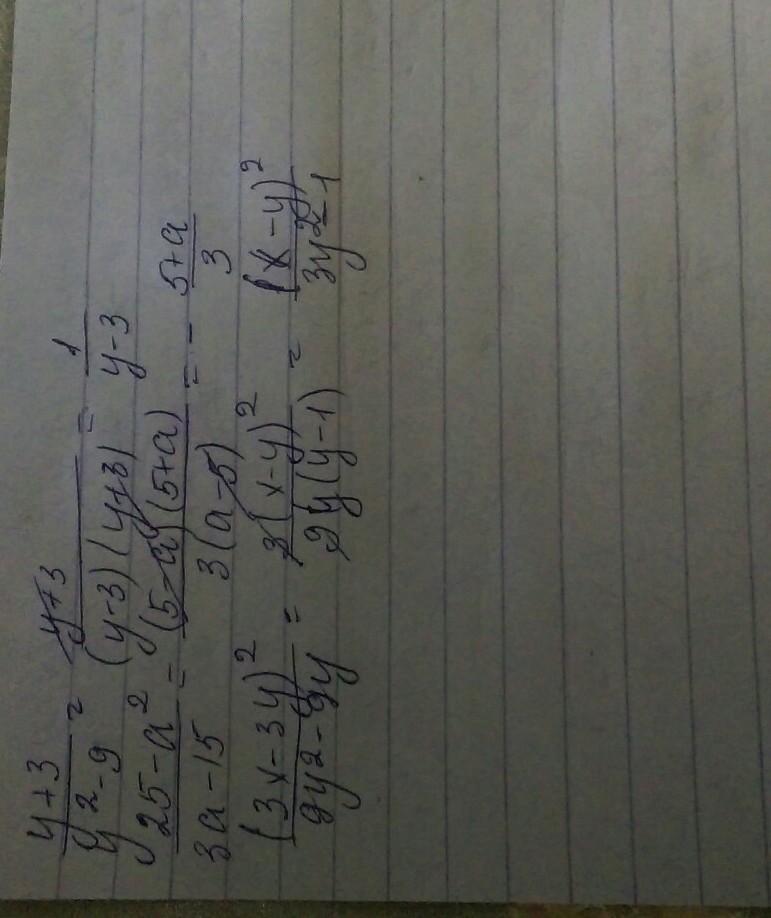 y+3 / y²-9 = y+3 / (y-3)(y+3) = 1 / y-3
25-a² / 3a-15 = (5-a)(5+a) / 3(a-5) = - 5+a / 3
(3x-3y)² / 9y²-9y = 3(x-y)² / 9y(y-1) = (x-y)² / 3y²-1